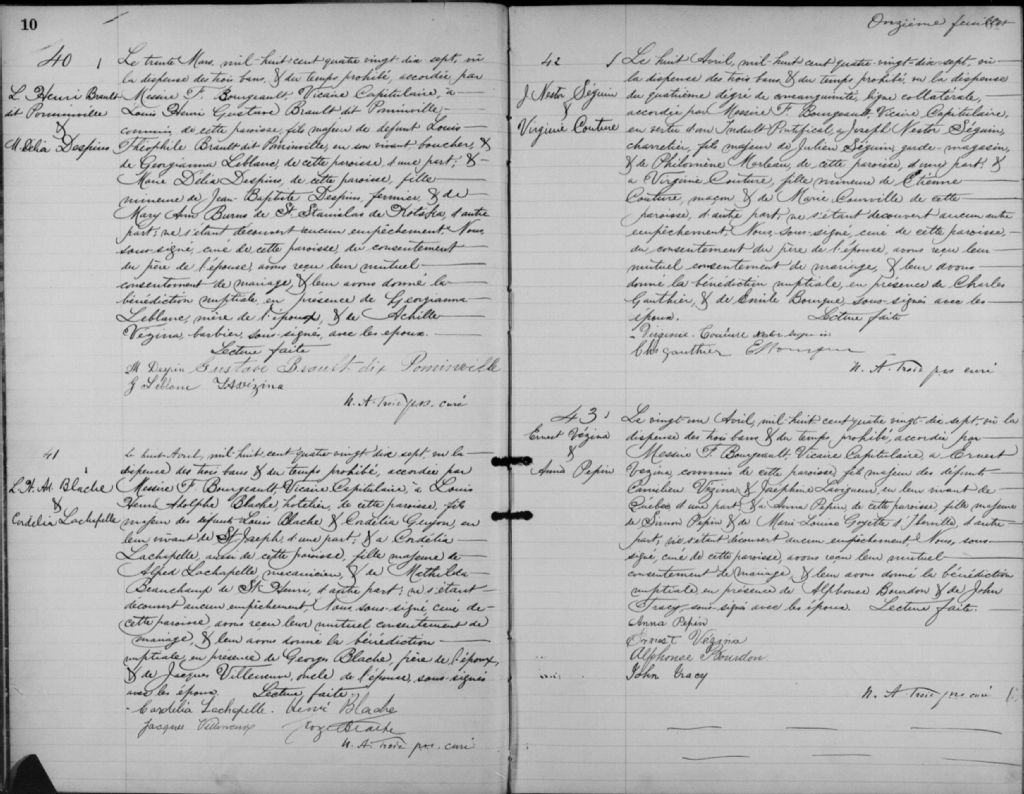 10
40
L. Henri Brault
dit Pominville
&
M. Délia Despins
Le trente Mars, mil-huit cent quatre vingt-dix sept, vu
la dispense des trois bans, & du temps prohibé, accordée, par
Messire F. Bourgeault, Vicaire Capitulaire, à
Louis Henri Gustave Brault dit Pominville,
commis, de cette paroisse, fils majeur de defunt Louis
Théophile Brault dit Pominville, en son vivant boucher, &
de Georgianna Leblanc, de cette paroisse, d'une part; &
Marie Délia Despins, de cette paroisse, fille
mineure de Jean-Baptiste Despins, fermier, & de
Mary Ann Burns de St. Stanislas de Kotska, d'autre
part; ne s'étant decouvert aucun empêchement, Nous,
sous-signé, curé de cette paroisse, du consentement
du père de l'épouse, avons reçu leur mutuel
consentement de mariage, & leur avons donné la
bénédiction nuptiale, en presence de Georgianna
Leblanc, mère de l'époux, & de Achille
Vézina, barbier, sous-signés, avec les epoux.
Lecture faite
M Despin Gustave Brault dit Pominville
G Leblanc
N. A. Troie ptre. curé
41
L. H. Ad. Blache
&
Cordelia Lachapelle
Le huit Avril, mil huit cent quatre vingt-dix sept, vu la
dispense des trois bans & du temps prohibé, accordée par
Messire F. Bourgeault, Vicaire Capitulaire, à Louis
Henri Adolphe Blache, hôtelier, de cette paroisse, fils
majeur des defunts Louis Blache & Cordélia Guyon, en
leur vivant de St. Joseph, d'une part; & a Cordélia
Lachapelle, aussi de cette paroisse, fille majeure de
Alfred Lachapelle macanicien, & de Mathilda
Beauchamp de St. Henri, d'autre part; ne s'étant
decouvert aucun empêchement Nous sous-signé curé de
cette paroisse avons reçu leur mutuel consentement de
mariage, & leur avons donné la bénédiction
nuptiale, en présence de Georges Blache, frère de l'époux,
& de Jacques Villeneuve, oncle de l'épouse, sous-signés
avec les époux. Lecture faite.
Cordélia Lachapelle. Henri Blache
Jacques Villeneuve
N. A. Troie ptre. curé
Onzième feuillet
42
J. Nestor Séguin
&
Virginie Couture
Le huit Avril, mil-huit cent quatre-vingt-dix-sept, vu
la dispense des trois bans, & du temps prohibé, vu la dispense
du quatrième dégré de consanguinité, ligne collatérale,
accordée par Messire F. Bourgeault, Vicaire Capitulaire,
en vertu d'un Indult Pontifical, a Joseph Nestor Séguin,
charretier, fils majeur de Julien Séguin, garde-magasin,
& de Philomène Merleau, de cette paroisse, d'une part; &
a Virginie Couture, fille mineure de Etienne
Couture, maçon & de Marie Courville de cette
paroisse, d'autre part; ne s'étant decouvert aucun autre
empêchement, Nous, sous-signé, curé de cette paroisse,
du consentement du père de l'épouse, avons reçu leur
mutuel consentement de mariage, & leur avons
donné la bénédiction nuptiale, en présence de Charles
Gauthier, & de Emile Bourque, sous-signés avec les
époux. Lecture faite
Virginie Couture
Chs Gauthier
N. A. Troie ptre curé
43
Ernest Vézina
&
Anna Pepin
Le vingt un Avril, mil-huit cent quatre vingt-dix sept, vu la
dispense des trois bans & du temps prohibé, accordée par
Messire F. Bourgeault, Vicaire Capitulaire, a Ernest
Vezina commis de cette paroisse, fils majeur des défunts
Camilien Vézina & Joséphine Lavigueur, en leur vivant de
Québec, d'une part, & a Anna Pepin, de cette paroisse, fille majeure
de Simon Pepin & de Marie-Louise Goyette d'Iberville, d'autre
part; ne s'étant découvert aucun empêchement Nous, sous-
signé, curé de cette paroisse, avons reçu leur mutuel
consentement de mariage, & leur avons donné la bénédiction
nuptiale en présence de Alphonse Bourdon & de John
Tracy, sous-signé avec les époux. Lecture faite.
Anna Pepin
Ernest Vézina
Alphonse Bourdon
John Tracy
N. A. Troie ptre curé